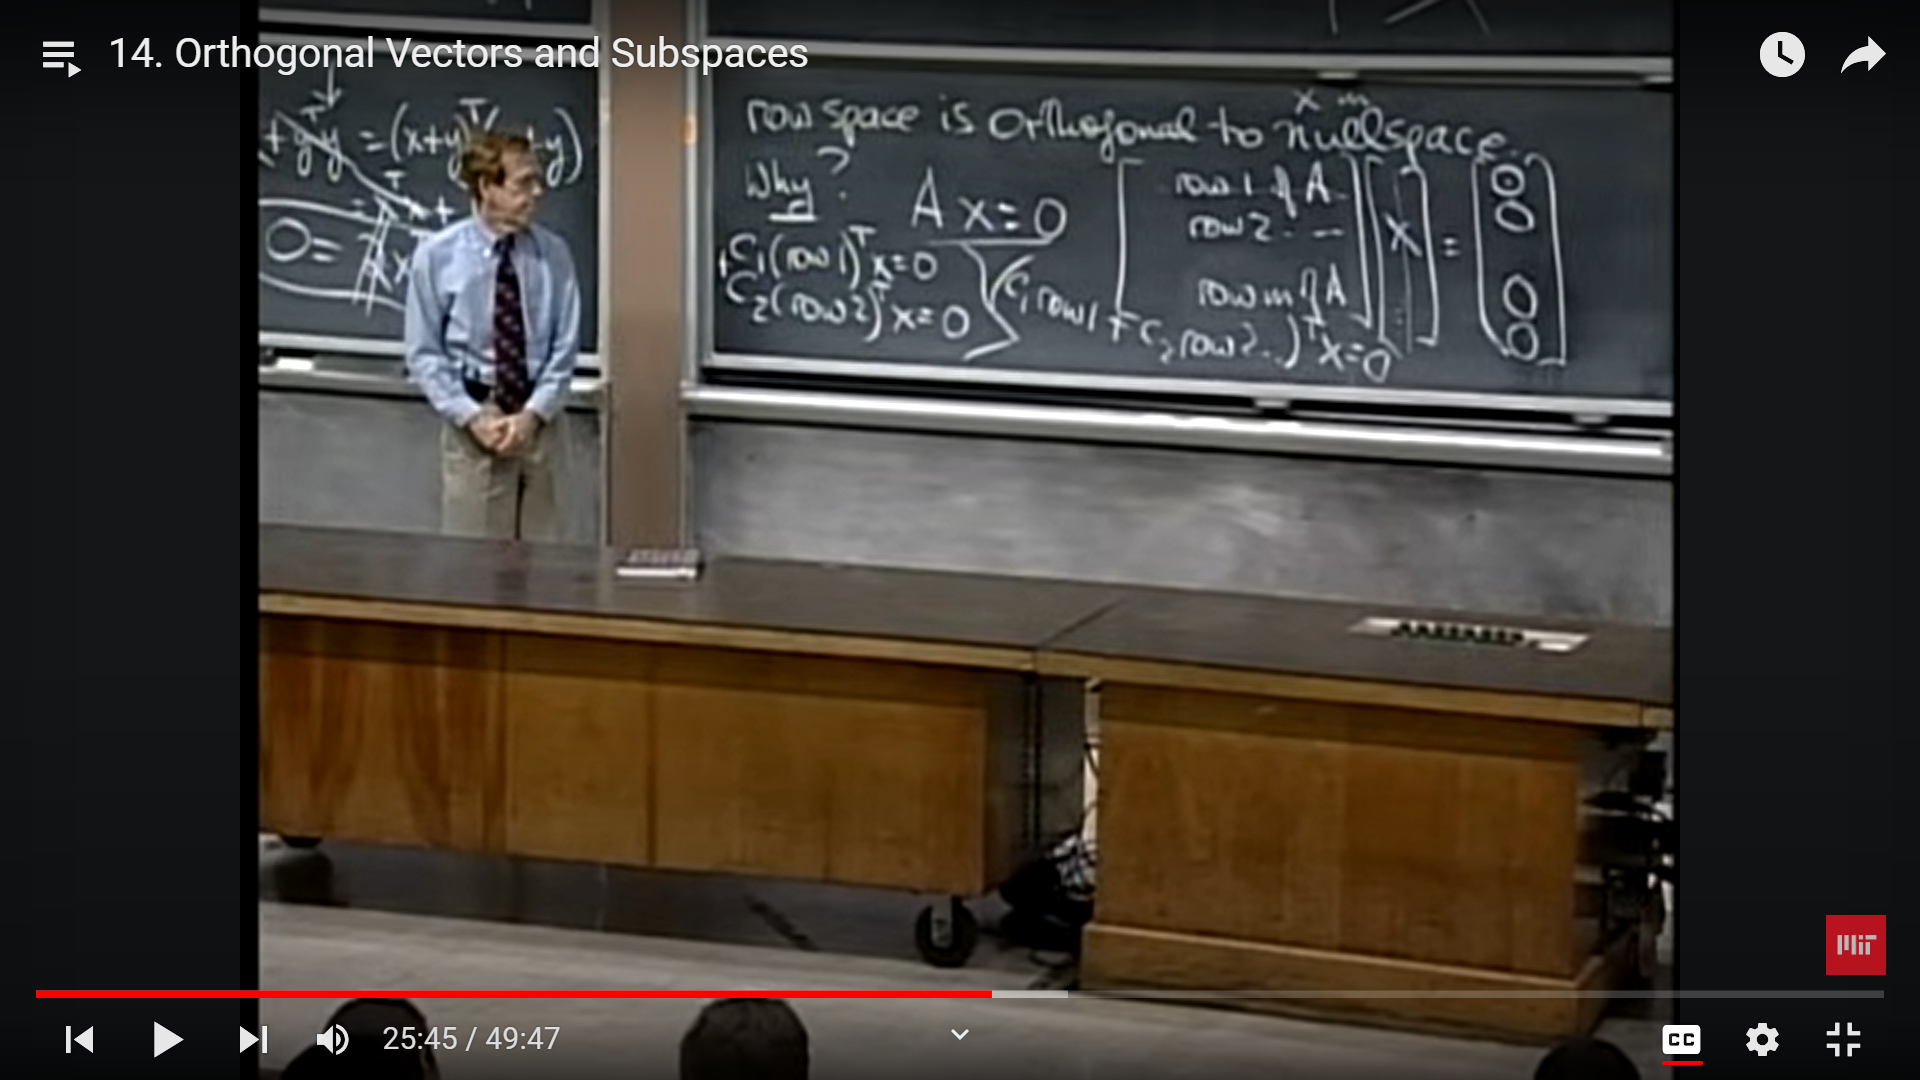 14. Orthogonal Vectors and Subspaces
= (x+y)ᵀ
0=
x in
row space is orthogonal to nullspace
Why?
A x = 0
[row 1 of A
row 2 . --
row m of A] [x] = [0
0
0
0]
+ C₁(row 1)ᵀ x = 0
C₂(row 2)ᵀ x = 0
(C₁ row 1 + C₂ row 2...)ᵀ x = 0
MIT
25:45 / 49:47
CC